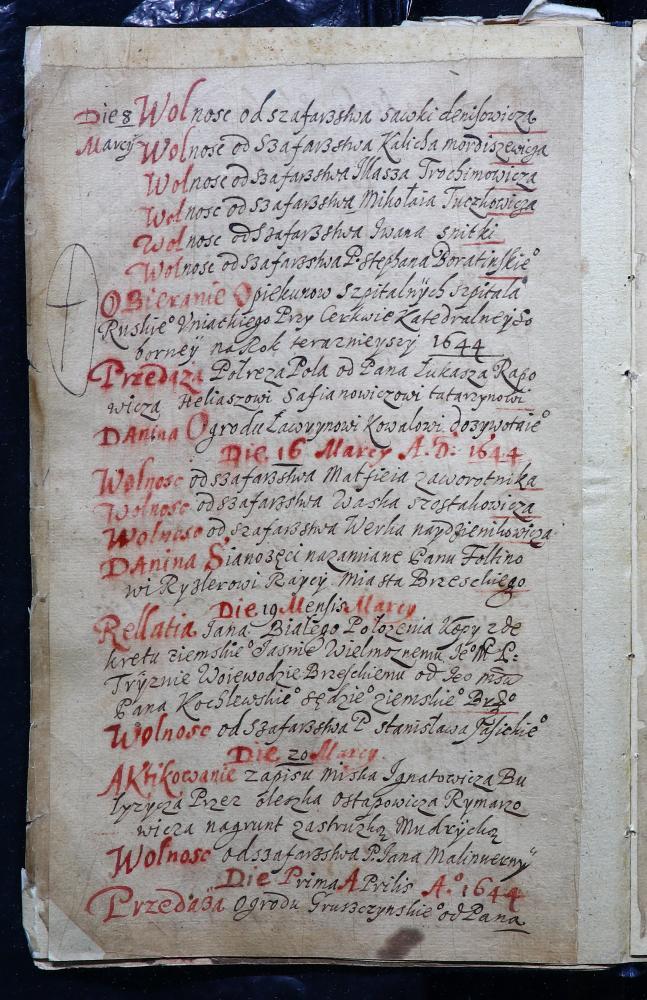 Die 8 Wolnosc od szafarstwa sawki denisowicza
Marcÿ Wolnosc od szafarstwa Kalicha mordiszewicza
Wolnosc od szafarstwa Ilasza Trochimowicza
Wolnosc od szafarstwa Mikołaia Tuczkowicza
Wolnosc od szafarstwa Iwana snitki
Wolnosc od szafarstwa P stephana Boratinskieº
OBieranie Opiekunow szpitalnÿch szpitala
Ruskieº Vniackiego Przy Cerkwie Katedralneÿ So
borneÿ na Rok terazmieyszÿ 1644
Przedaża Polreza Pola od Pana Łukasza Rapo
wicza Heliaszowi Safianowiczowi tatarzynowi
DAnina Ogrodu Ławrynowi Kowalowi dożywotnieº
Die 16 Marcy A. D: 1644
Wolnosc od szafarstwa Matfieia zaworotnika
Wolnosc od szafarstwa Waska szostakowicza
Wolnosc od szafarstwa Werka naÿdzienikowicza
DAnina Sianożęci na zamiane Panu Foltino
wi Ryżlerowi Raÿcÿ Miasta Brzeskiego
Die 19 Mensis Marcy
Rellatia Jana Białego Położenia Kopÿ z de
kretu ziemskieº Jasnie Wielmoznemu Jeº M P:
Trÿznie Woiewodzie Brzeskiemu od Jeo mśu
Pana Kochlewskieº sędzieº ziemskieº Brzº
Wolnosc od szafarstwa P stanisława Jasickieº
Die 20 Marcy
AKtikowanie zapisu Miska Jgnatowicza Bu
łyzycza Przez oleszka Ostapowicza Rymarzo
wicza na grunt za struzką Mudrÿcką
Wolnosc od szafarstwa P. Jana Malinwerny
Die Prima APrilis Aº 1644
Przedaża Ogrodu Gruszczynskieº od Pana